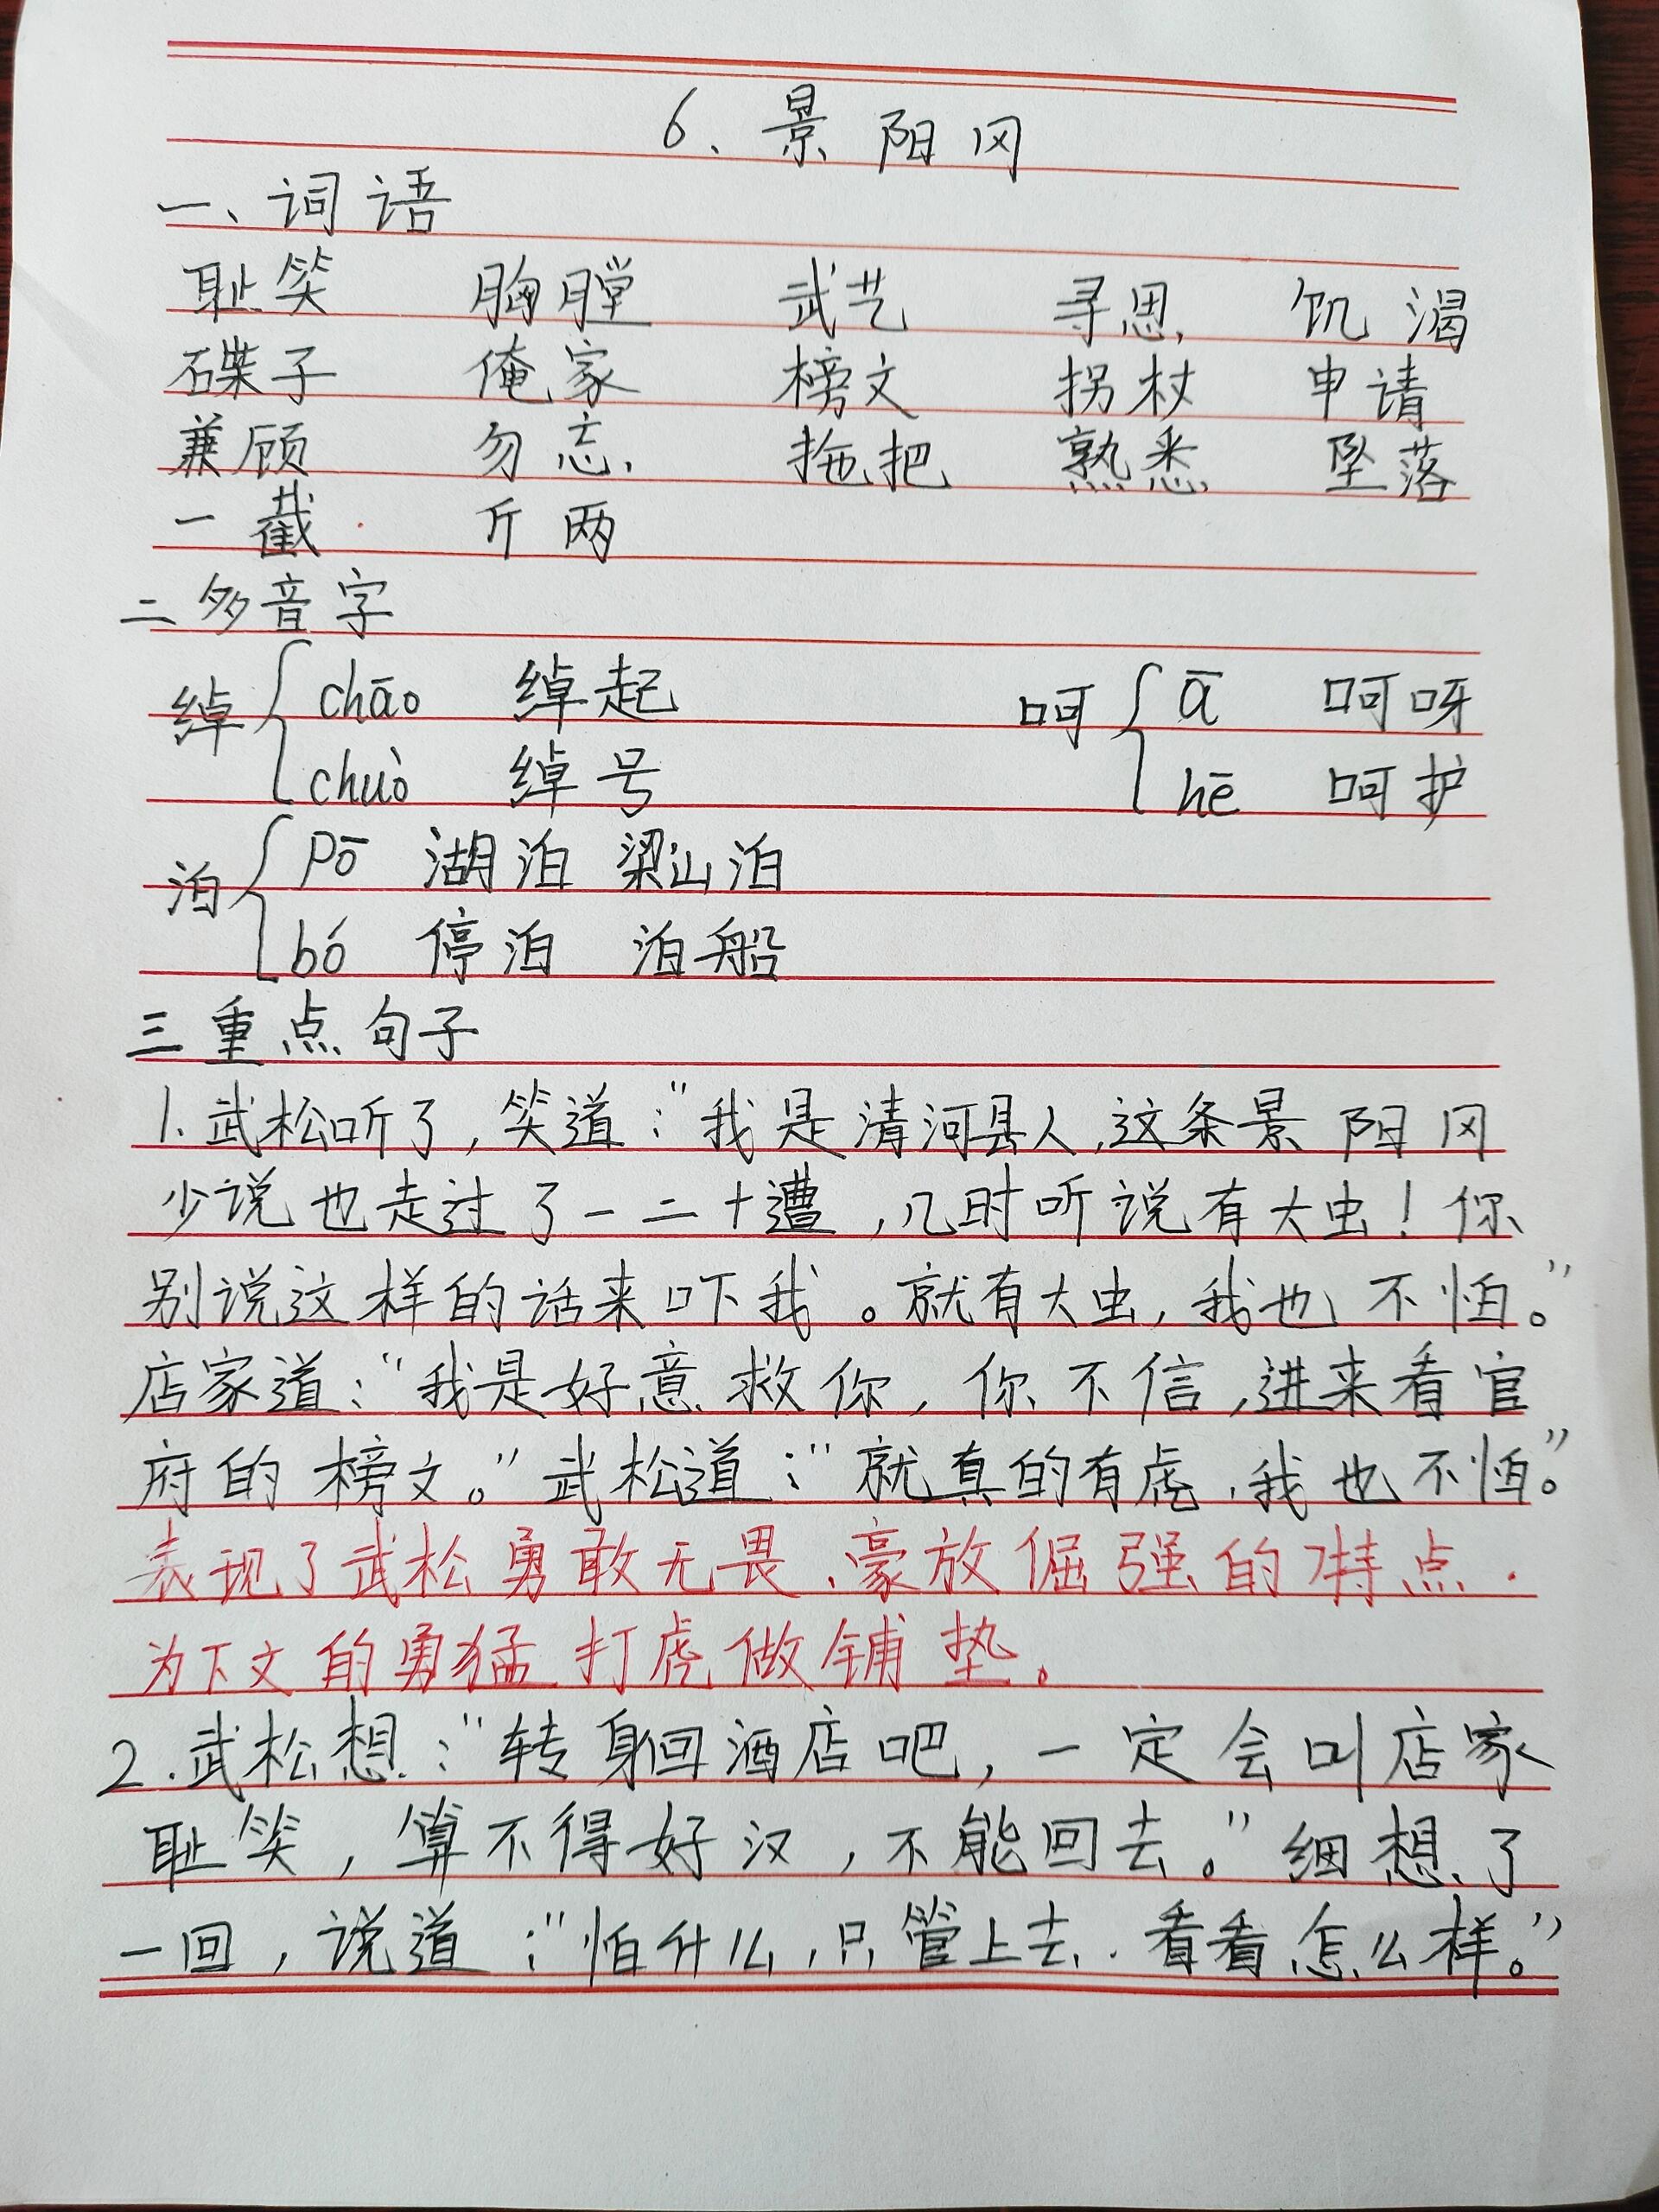 6、景阳冈
一、词语
耻笑 胸膛 武艺 寻思 饥渴
碟子 俺家 榜文 拐杖 申请
兼顾 勿忘 拖把 熟悉 坠落
一截 斤两
二多音字
绰 chāo 绰起 呵 ā 呵呀
chuò 绰号 hē 呵护
泊 pō 湖泊 梁山泊
bó 停泊 泊船
三重点句子
1.武松听了,笑道:"我是清河县人,这条景阳冈
少说也走过了一二十遭,几时听说有大虫!你
别说这样的话来吓我。就有大虫,我也不怕。"
店家道:"我是好意救你,你不信,进来看官
府的榜文。"武松道:"就真的有虎,我也不怕。"
表现了武松勇敢无畏、豪放倔强的特点.
为下文的勇猛打虎做铺垫。
2.武松想:"转身回酒店吧,一定会叫店家
耻笑,算不得好汉,不能回去。"细想了
一回,说道:"怕什么,只管上去.看看怎么样。"